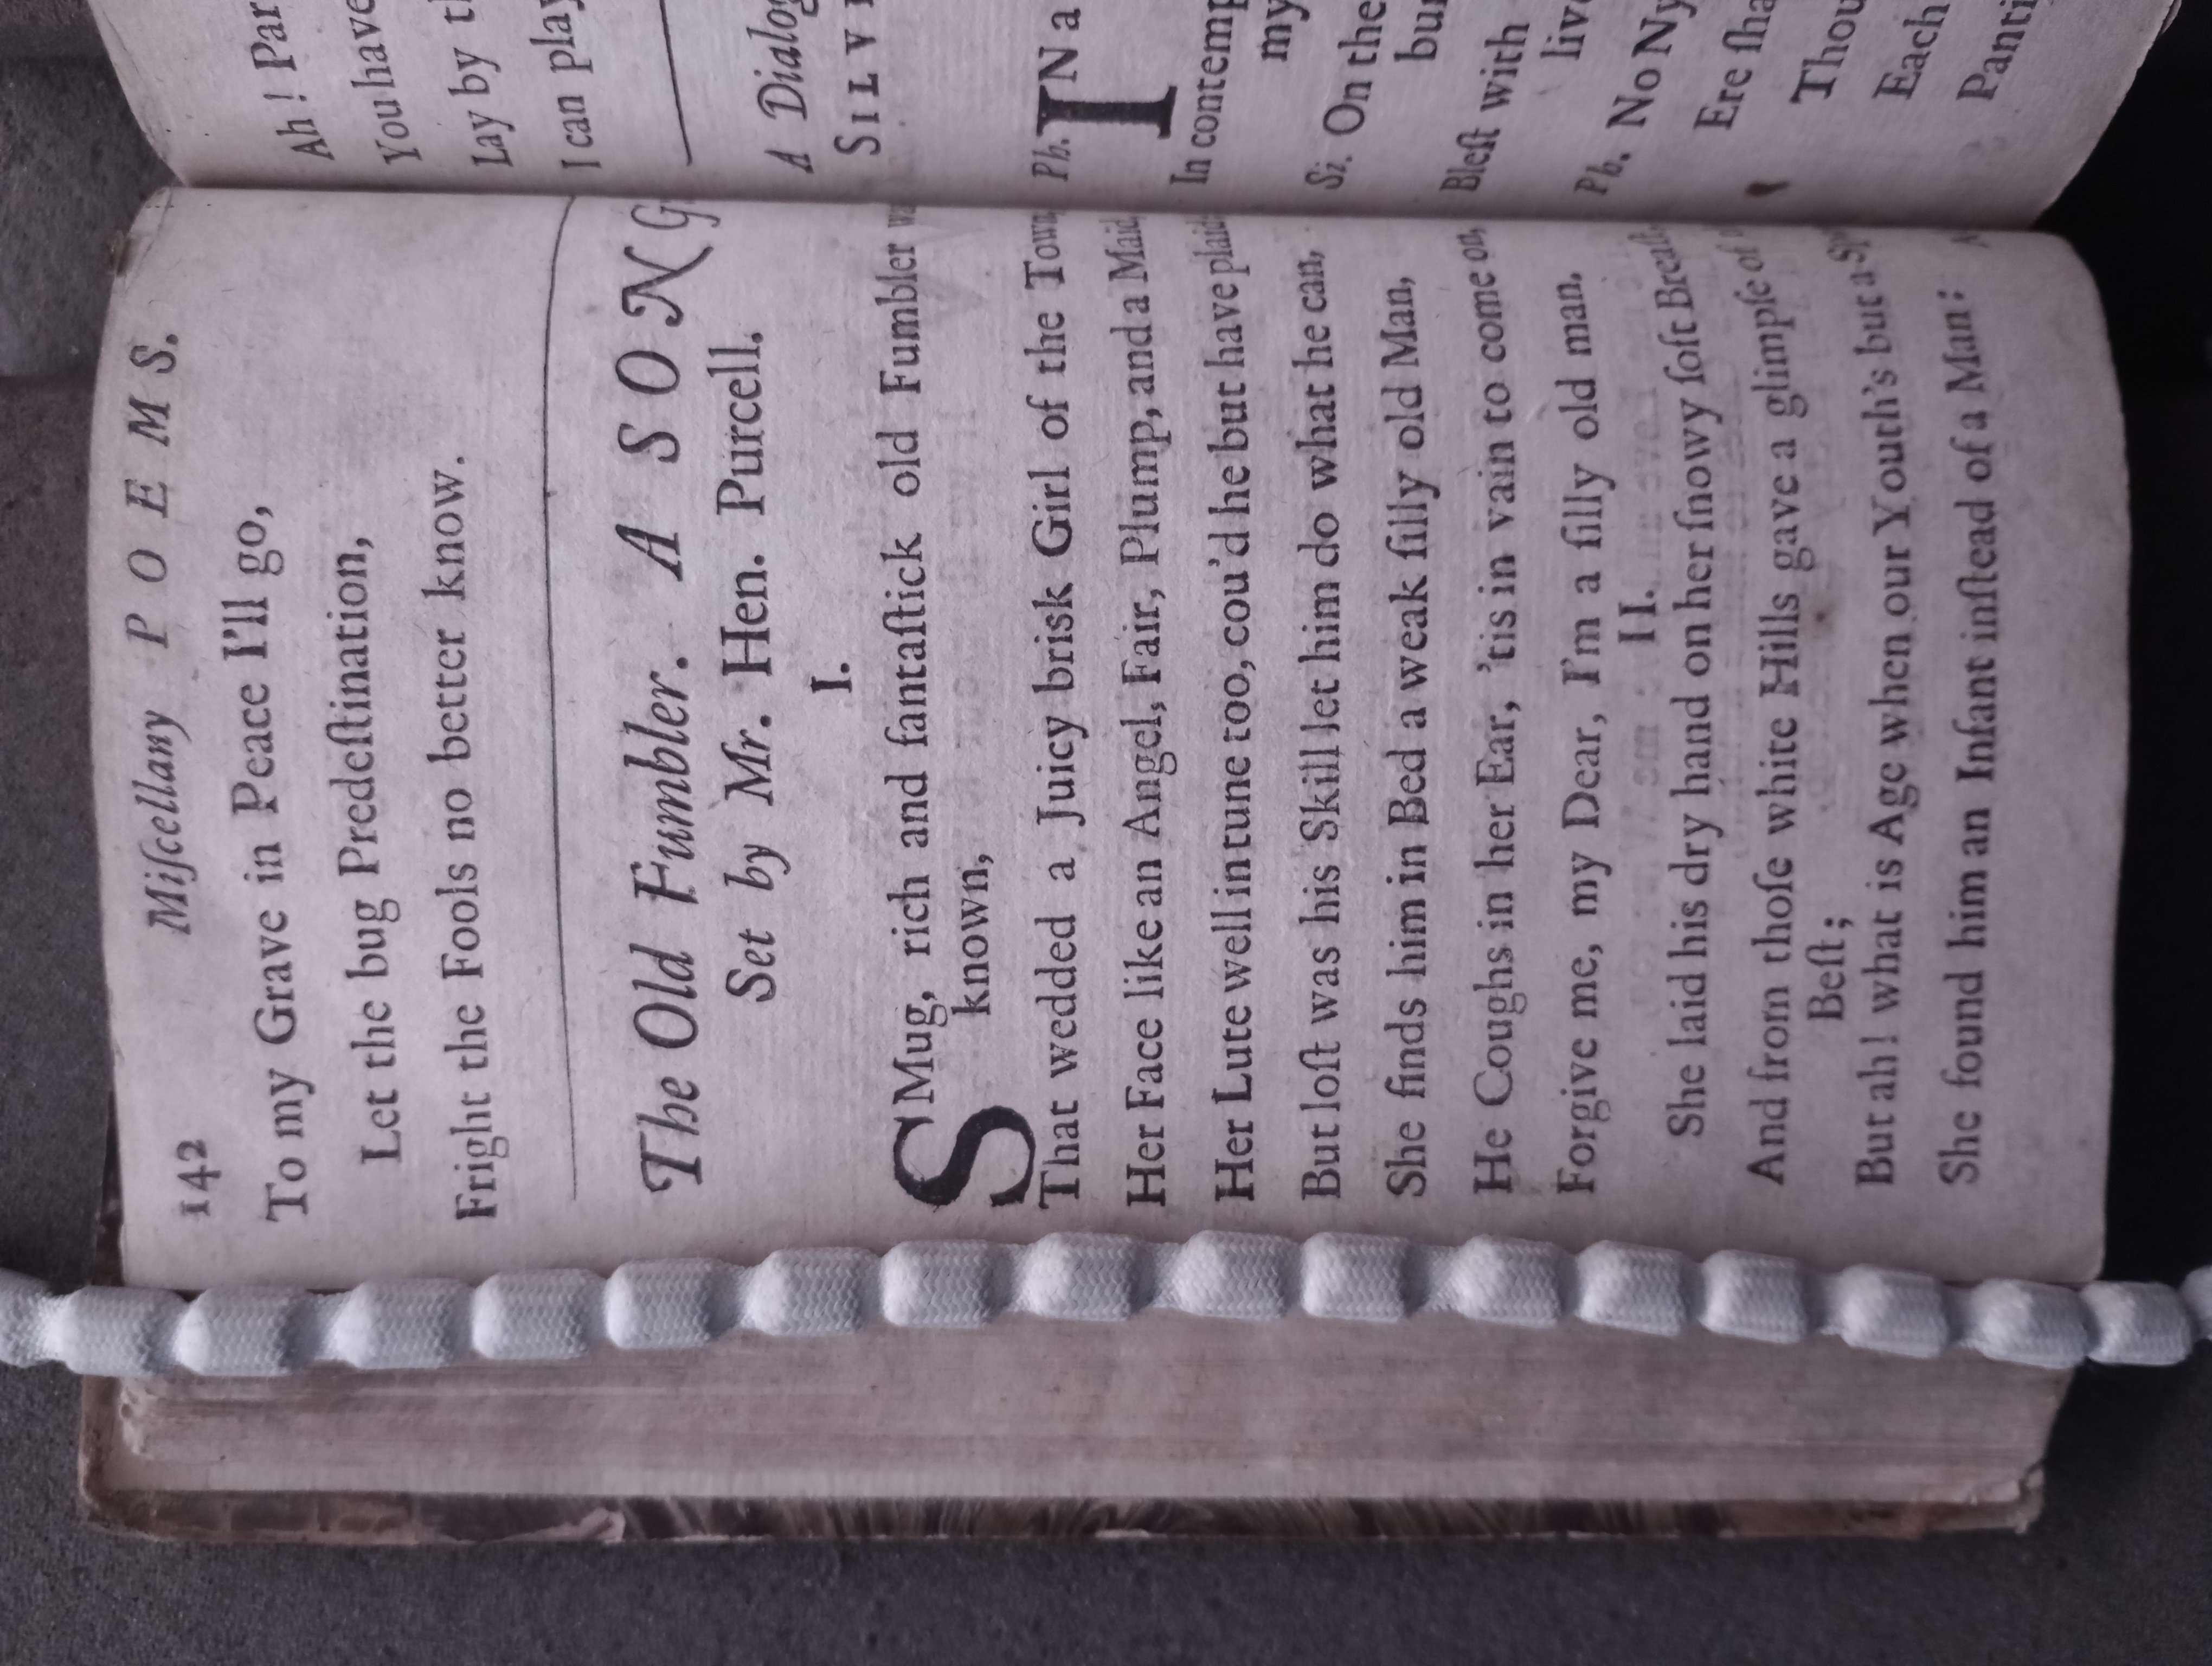 142 Miſcellany POEMS.
To my Grave in Peace I'll go,
Let the bug Predeſtination,
Fright the Fools no better know.
The Old Fumbler. A SONG
Set by Mr. Hen. Purcell.
I.
SMug, rich and fantaſtick old Fumbler
known,
That wedded a Juicy brisk Girl of the Town
Her Face like an Angel, Fair, Plump, and a Maid
Her Lute well in tune too, cou'd he but have plaid
But loſt was his Skill let him do what he can,
She finds him in Bed a weak ſilly old Man,
He Coughs in her Ear, 'tis in vain to come on,
Forgive me, my Dear, I'm a ſilly old man.
II.
She laid his dry hand on her ſnowy ſoft Breaſt
And from thoſe white Hills gave a glimpſe of
Beſt;
But ah! what is Age when our Youth's but a
She found him an Infant inſtead of a Man:
Ah! Par
You have
Lay by
I can Play
A Dialog
SILV
Ph. IN a
In contemp
my
Si. On the
bur
Bleſt with
Ph. No Ny
Ere ſha
Thou
Each
Panti